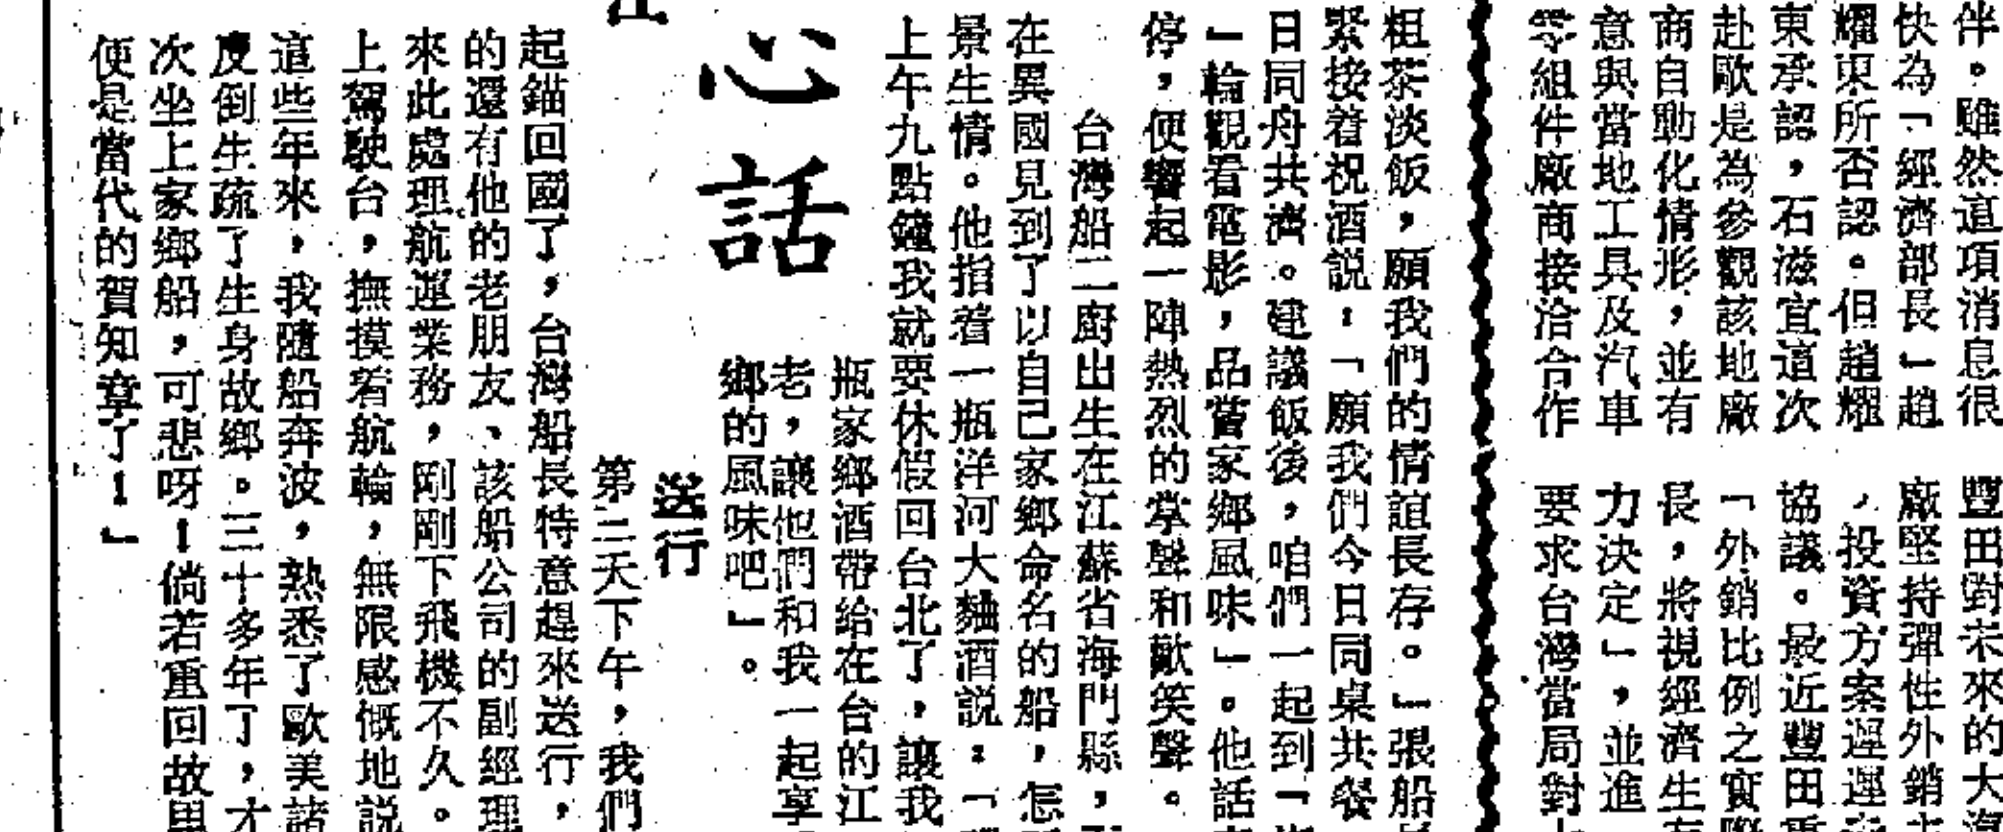 伴。雖然這項消息很
快為「經濟部長」趙
耀東所否認。但趙耀
東承認，石滋宜這次
赴歐是為參觀該地廠
商自動化情形，並有
意與當地工具及汽車
零組件廠商接洽合作
豐田對未來的大汽
廠堅持彈性外銷
，投資方案遲遲
協議。最近豐田
「外銷比例之實際
長，將視經濟生
力決定」，並進
要求台灣當局對
粗茶淡飯，願我們的情誼長存。」張船
緊接着祝酒説：「願我們今日同桌共餐
日同舟共濟。建議飯後，咱們一起到「
」輪觀看電影，品嘗家鄉風味」。他話
停，便響起一陣熱烈的掌聲和歡笑聲。
台灣船二廚出生在江蘇省海門縣，
在異國見到了以自己家鄉命名的船，怎
景生情。他指着一瓶洋河大麯酒説：「
上午九點鐘我就要休假回台北了，讓我
瓶家鄉酒帶给在台的江
老，讓他們和我一起享
鄉的風味吧」。
心話
送行
第三天下午，我們
起錨回國了，台灣船長特意趕來送行，
的還有他的老朋友、該船公司的副經理
來此處理航運業務，剛剛下飛機不久。
上駕駛台，撫摸着航輪，無限感慨地説
這些年來，我隨船奔波，熟悉了歐美諸
度倒生疏了生身故鄉。三十多年了，才
次坐上家鄉船，可悲呀！倘若重回故里
便是當代的賀知章了！」